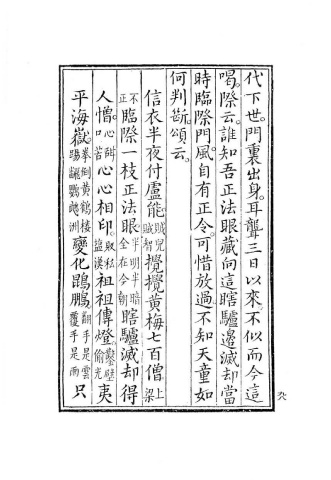 代下世。門裏出身。耳聾三日以來不似而今這
喝。際云。誰知吾正法眼藏向這瞎驢邊滅却。當
時臨際門風。自有正令。可惜放過。不知天童如
何判斷。頌云。
信衣半夜付盧能賊兒賊智攪攪黃梅七百僧。上梁
不正臨際一枝正法眼半明半暗全在今朝瞎驢滅却得
人憎。心甜口苦心心相印。販私鹽漢祖祖傳燈。鑿壁偷光夷
平海嶽。拳倒黃鶴樓踢翻鸚鵡洲變化鵾鵬翻手是雲覆手是雨只